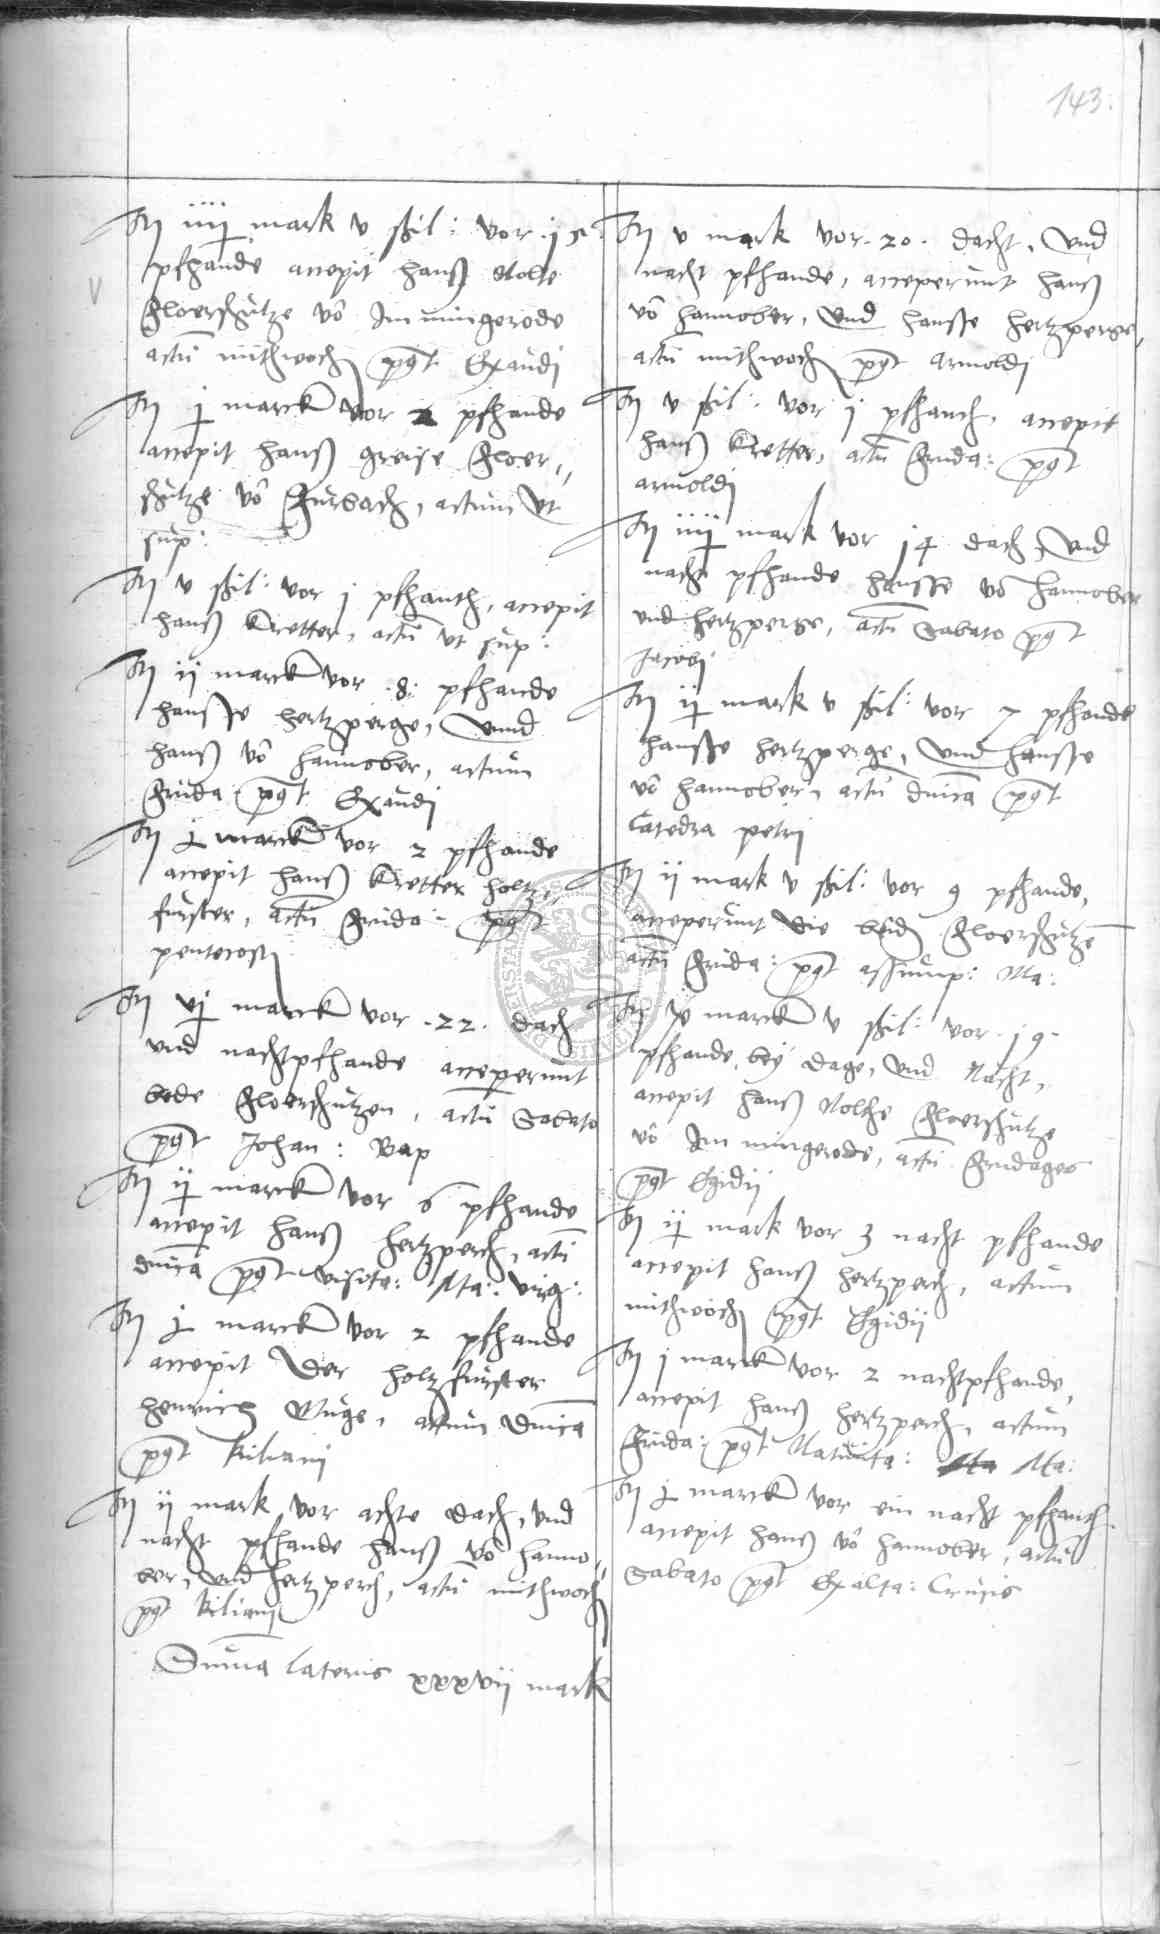 143.
It iiij mark v ßil: vor 15
pfhande accepit Hanß Nolte
Floerschutze vō Immingerode
actū mithwoch pꝰt Exaudj
It j marck vor 2 pfhande
accepit Hanß greise Floer„
schutze vō Furbach, actum ut
sup:
It v ßil: vor j pfhanth, accepit
Hanß Kretter, actū ut sup:
It ij marck vor .8. pfhande
Hansse Hertzperge, vnnd
Hanß vō Hannober, actum
Frida pꝰt Exaudj
It j marck vor 2 pfhande
accepit Hanß Kretter holtz„
furster, actū Frida: pꝰt
pentecost
It vj marck vor .22. dach
vnd nachtpfhande acceperunt
bede Floerschutzen, actū Sabato
pꝰt Johan: Bap
It ij marck vor 6 pfhande
accepit Hanß Hertzperch, actū
dnīca pꝰt visita: Ma: virg:
It j marck vor 2 pfhande
accepit Der holtzfurster
Henrich Ruge, actum Dnīca
pꝰt Kiliani
It ij mark vor achte dach, vnd
nacht pfhande Hanß vō Hanno„
ber, vnd Hertzperch, actū mithwoch
pꝰt Kilianj
Summa lateris xxxvij mark
It v mark vor .20. dacht, vnd
nacht pfhande, acceperunt Hanß
vō Hannober, vnd Hansse Hertzperge,
actū mithwoch pꝰt Arnoldj
It v ßil: vor j pfhanth, accepit
Hanß Kretter, actū Frida: pꝰt
arnoldj
It iiij mark vor 14 dach, vnd
nacht pfhande Hansse vō Hannober
vnd Hertzperge, actū Sabato pꝰt
Jacobj
It ij mark v ßil: vor 7 pfhande
Hansse Hertzperge, vnd Hansse
vō Hannober, actū dnīca pꝰt
Catedra petrj
It ij mark v ßil: vor 9 pfhande,
acceperunt die beid Floerschutze
actū Frida: pꝰt assump: Ma:
It marck v ßil: vor .19.
pfhande, bey dage, vnd Nacht,
accepit Hanß Nolthe Floerschutze
vō Immingerode, actū Fridages
pꝰt Egidij
It ij mark vor 3 nacht pfhande
accepit Hanß Hertzperch, actum
mithwoch pꝰt Egidij
It j marck vor 2 nachtpfhande,
accepit Hanß Hertzperch, actum
Frida: pꝰt Natiuita: Ma:
It j marck vor ein nacht pfhanth
accepit Hanß vō Hannober, actū
Sabato pꝰt Exalta: Crucis